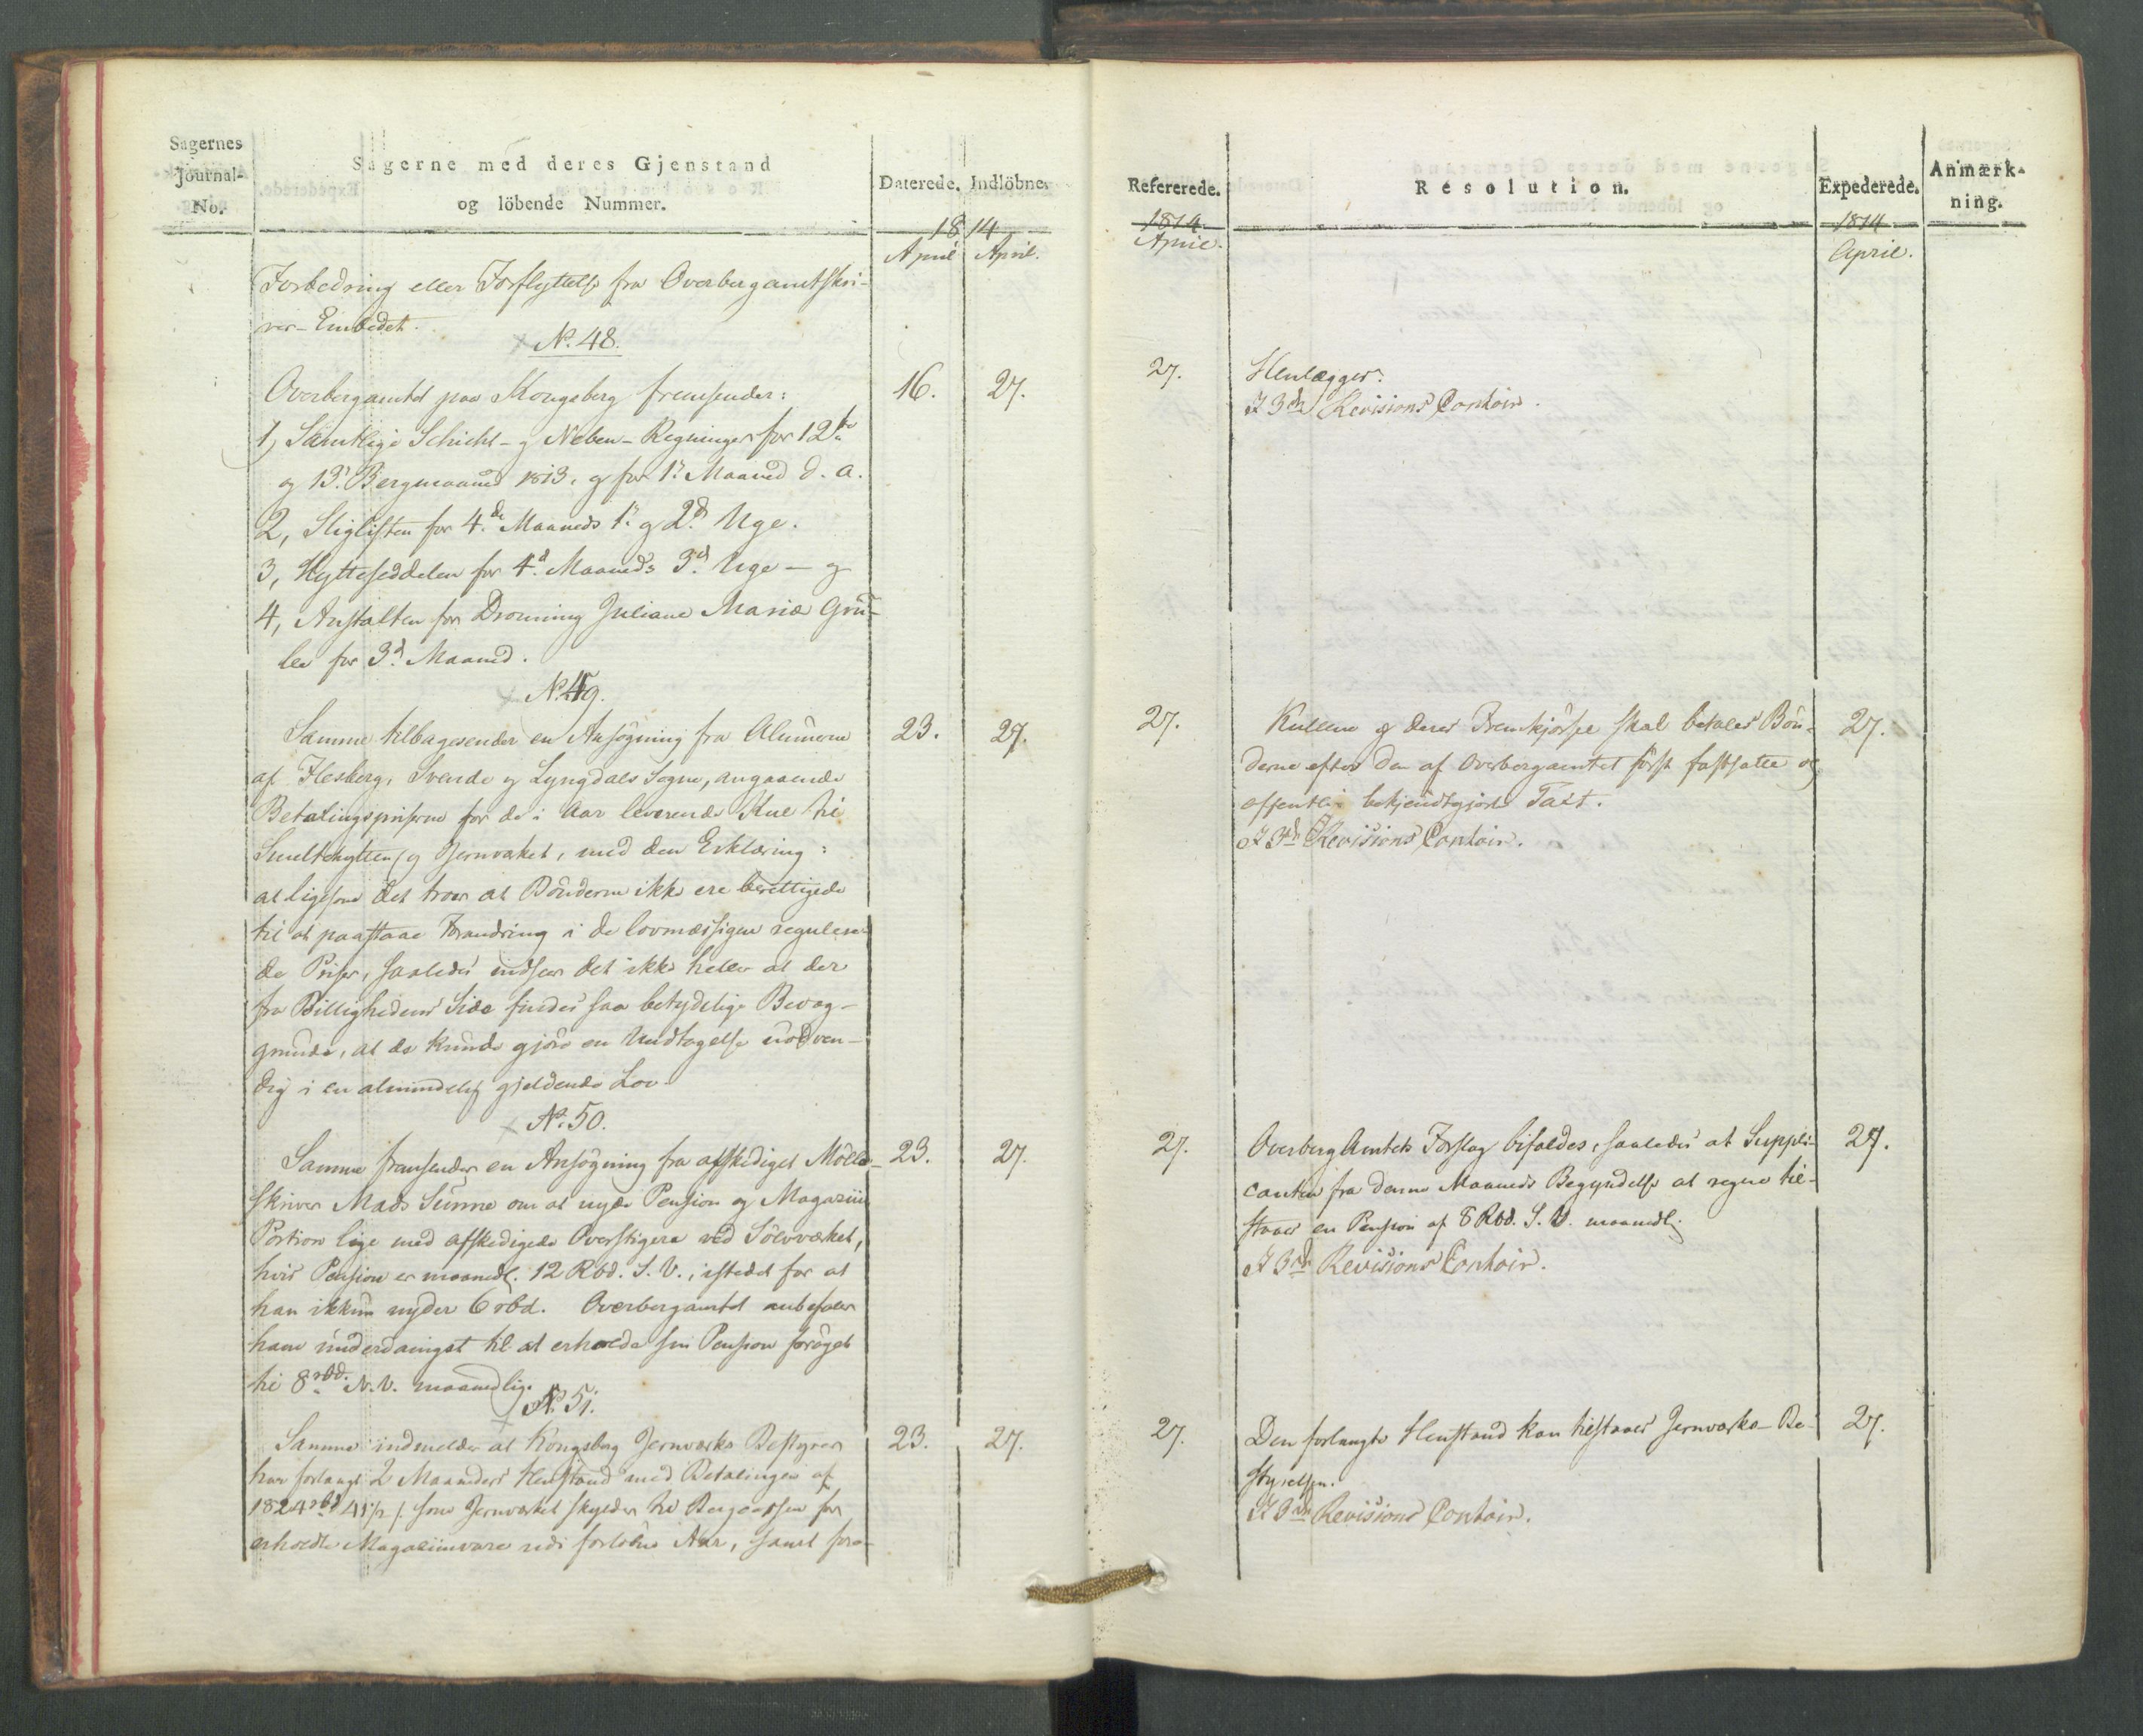 Sagernes
Journal-
No.
Sagerne med deres Gjenstand
og löbende Nummer.
Daterede. Indlöbne.
1814
April April.
Forbedring eller Forflyttelse fra Overbergamtskri-
ver-Embedet.
No. 48.
Overbergamtet paa Kongsberg fremsender: 16. 27.
1, Samtlige Schicht- og Neben-Regninger for 12te
og 13. Bergmaaned 1813, og for 1. Maaned d. A.
2, Sliglisten for 4de Maaneds 1. og 2d Uge.
3, Hyttesedelen for 4d Maaneds 3d Uge - og
4, Anstalten for Dronning Juliane Maria Gru-
be for 3d Maaned.
No. 49.
Samme tilbagesender en Ansögning fra Almuerne 23. 27.
af Flesberg, Svende og Lyngdals Sogne, angaaende
Betalingspriserne for de i Aar leverende Kul til
Smeltehytten og Jernværket, med den Erklæring:
at ligesom det troer at Bönderne ikke ere berettigede
til at paastaae Forandring i de lovmæssigen reguleren-
de Priser, saaledes indseer det ikke heller at der
fra Billighedens Side findes saa betydelige Bevæg-
grunde, at de kunde gjöre en Undtagelse nödven-
dig i en almindelig gjeldende Lov.
No. 50.
Samme fremsender en Ansögning fra afskediget Mölle- 23. 27.
skriver Mads Sunne om at nyde Pension og Magaziin
Portion lige med afskedigede Overstigere ved Sölvværket,
hvis Pension er maanedl. 12 Rbd. S. V., istedet for at
han ikkun nyder 6 rbd. Overbergamtet anbefaler
ham underdanigst til at erholde sin Pension foröget
til 8 rbd. N. V. maanedlig.
No. 51.
Samme indmelder at Kongsberg Jernværks Bestyrer 23. 27.
har forlangt 2 Maaneders Henstand med Betalingen af
1824 rbd 41 1/2 s. som Jernværket skylder til Bergcassen for
erholdte Magaziinvare udi forlöbne Aar, samt fore-
Refererede.
1814
April.
Resolution.
Expederede.
1814
April.
Anmærk-
ning.
27. Henlægges.
I 3die Revisions Contoir.
27. Kullene og deres Fremkjörsel skal betales Bön- 27.
derne efter den af Overbergamtet först fastsatte og
offentlig bekjendtgjorte Taxt.
I 3die Revisions Contoir.
27. OverbergAmtets Forslag bifaldes, saaledes at Suppli- 27.
canten fra denne Maaneds Begyndelse at regne til-
staaes en Pension af 8 Rbd. S. V. maanedl.
I 3die Revisions Contoir.
27. Den forlangte Henstand kan tilstaaes Jernværks-Be- 27.
styrelsen.
I 3die Revisions Contoir.